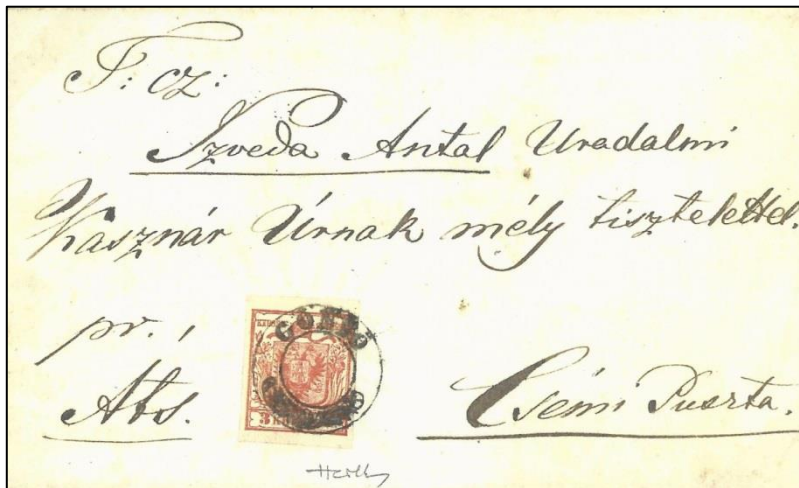 T: cz:
Szveda Antal Uradalmi
Kasznár Úrnak mély tisztelettel.
pr.
Abs.
GÖNYÖ
3
Csémi Puszta.